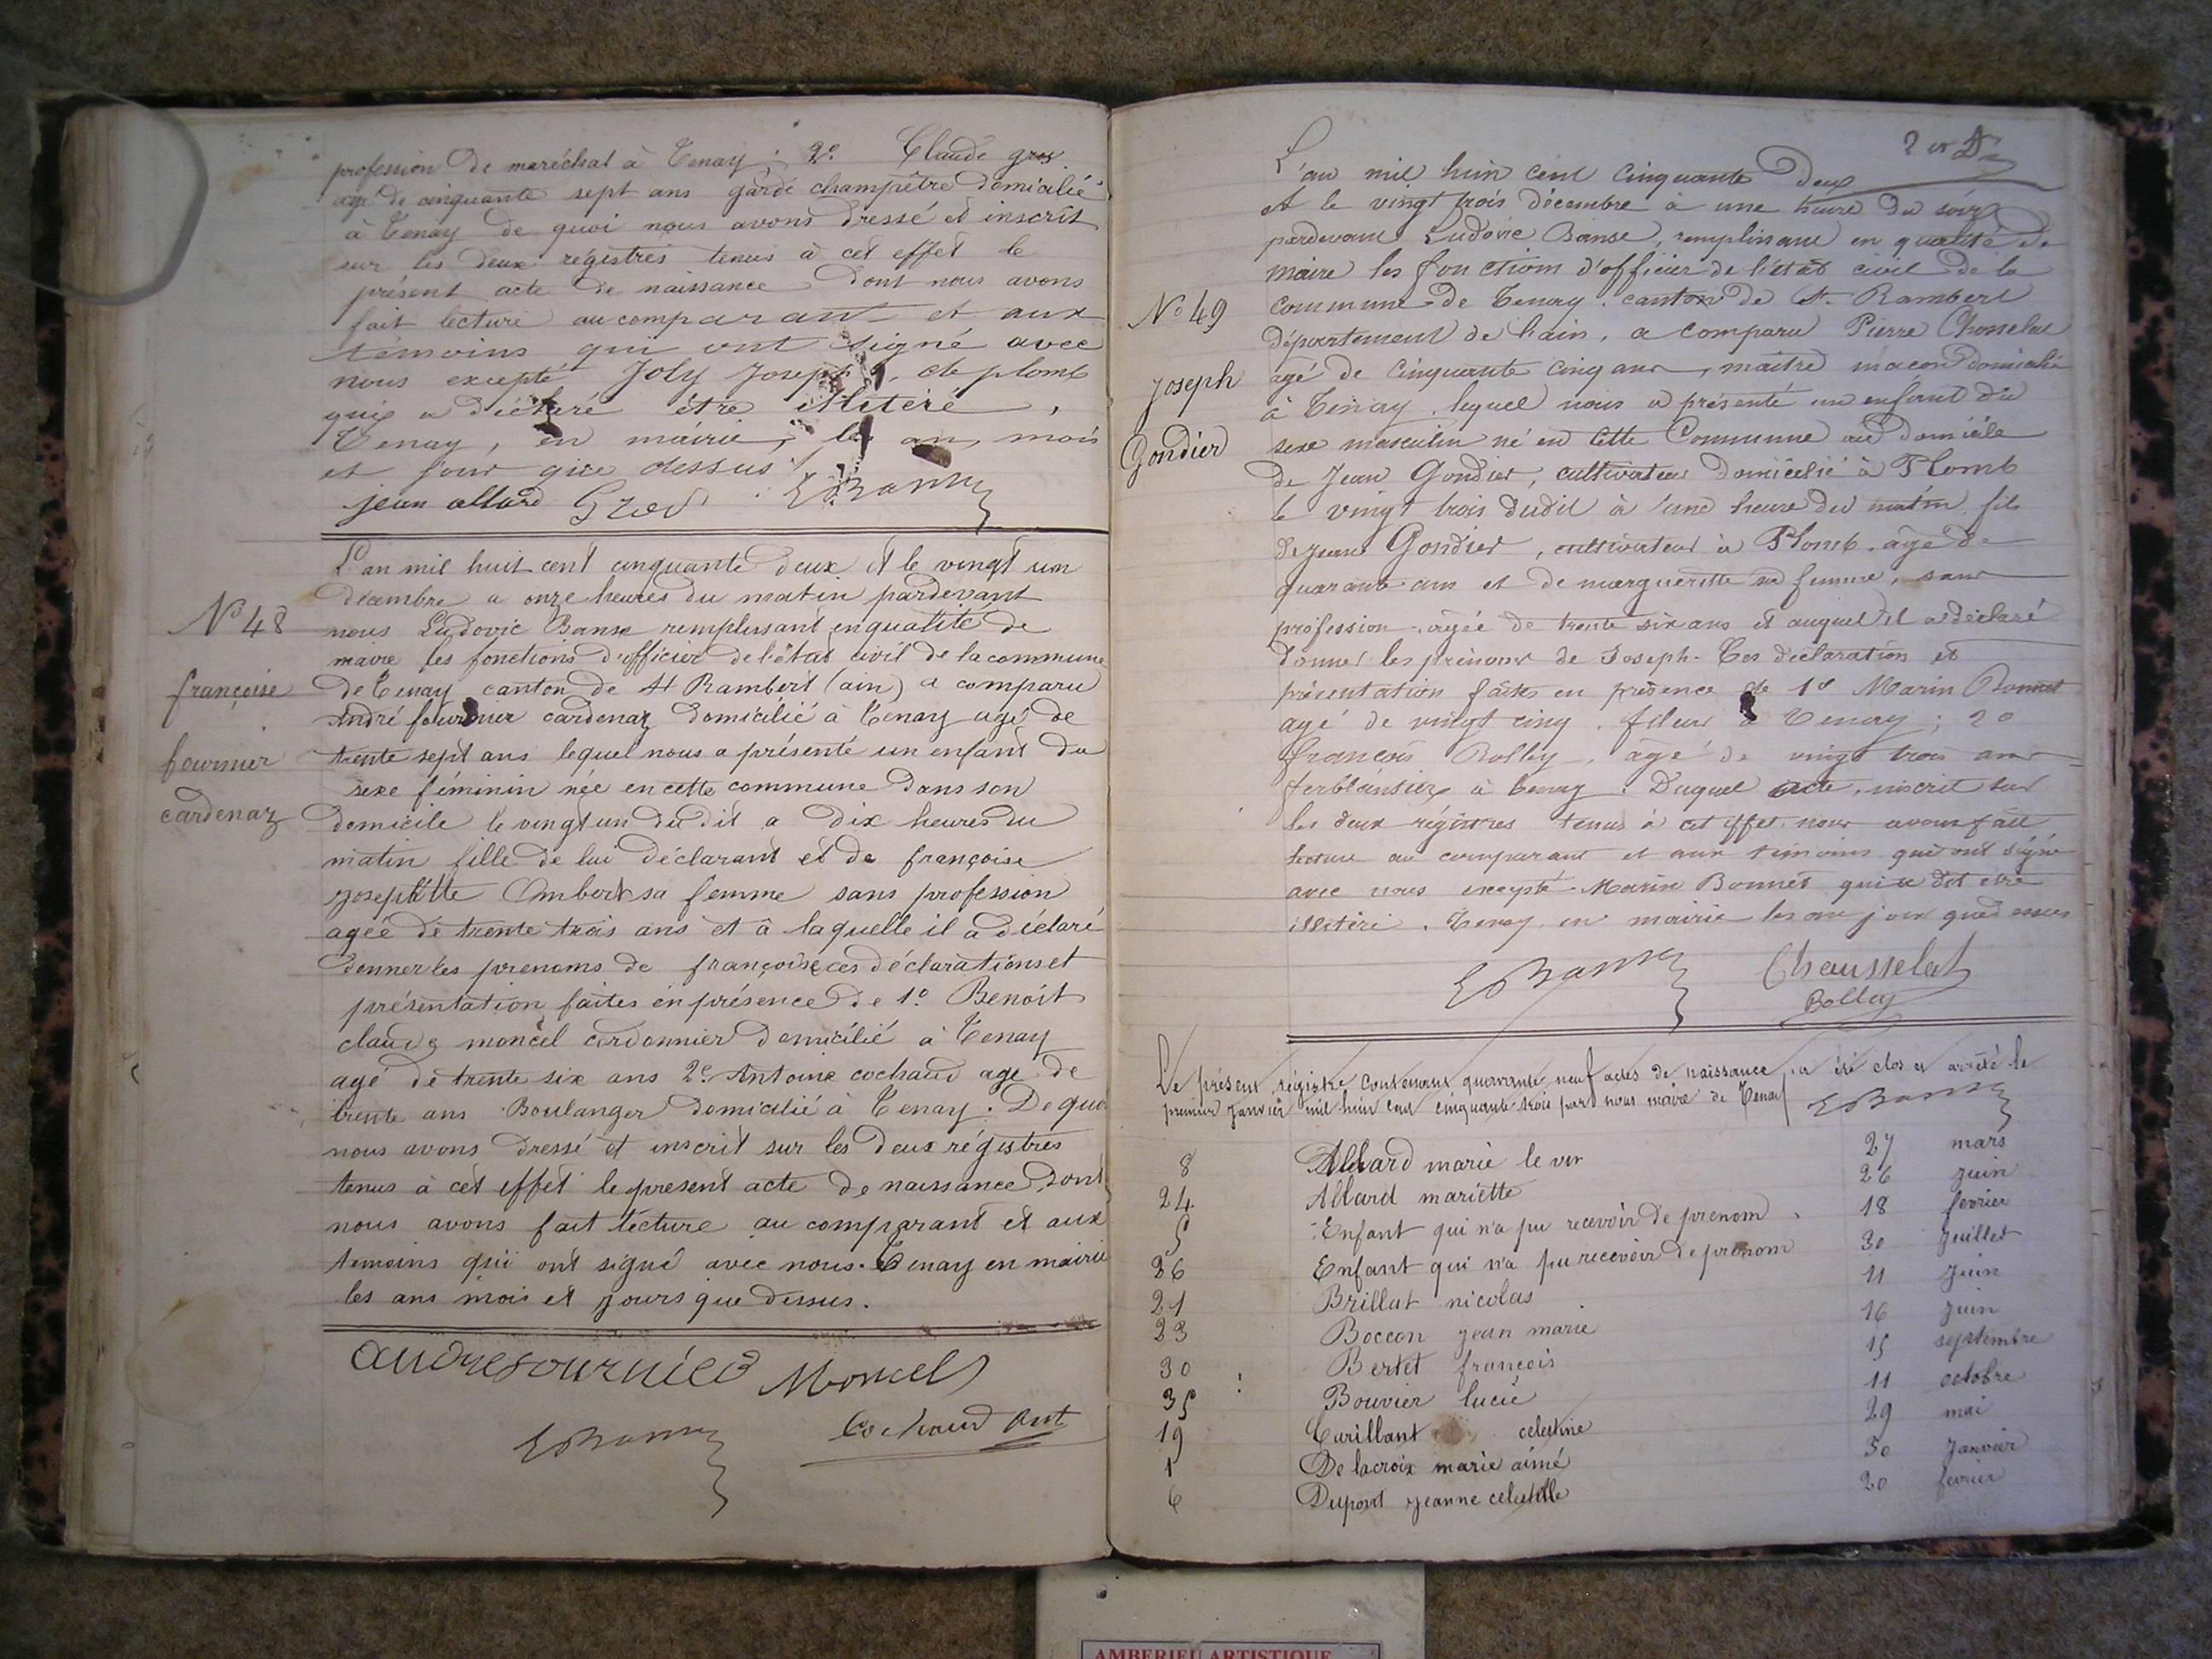 profession de maréchal à Tenay ; 2º Claude gros
agé de cinquante sept ans garde champêtre domicilié
à Tenay de quoi nous avons dressé et inscrit
sur les deux régistres tenus à cet effet le
présent acte de naissance dont nous avons
fait lecture au comparant et aux
témoins qui ont signé avec
nous excepté Joly Joseph, de plomb
qui a déclaré être illitéré,
Tenay, en mairie, les an, mois
et jour que dessus
jean allard Gros
L'an mil huit cent cinquante deux et le vingt un
décembre a onze heures du matin pardevant
Nº 48 nous Ludovic Banse remplissant en qualité de
maire les fonctions d'officier de l'état civil de la commune
françoise de Tenay canton de St Rambert (ain) a comparu
andré fournier cardenaz domicilié à Tenay agé de
fournier trente sept ans lequel nous a présenté un enfant du
sexe féminin née en cette commune dans son
cardenaz domicile le vingt un du dit a dix heures du
matin fille de lui déclarant et de françoise
josephtte Ombert sa femme sans profession
agée de trente trois ans et à laquelle il a déclaré
donner les prenoms de françoise ces déclarations et
présentation faites en présence de 1º Benoit
claude moncel cordonnier domicilié à Tenay
agé de trente six ans 2º Antoine cochaud age de
trente ans Boulanger domicilié à Tenay. De quoi
nous avons dressé et inscrit sur les deux régistres
tenus à cet effet le present acte de naissance dont
nous avons fait lecture au comparant et aux
temoins qui ont signé avec nous. Tenay en mairie
les ans mois et jours que dessus.
andre fournier Moncel
Cochaud Ant
L'an mil huit cent cinquante deux
et le vingt trois décembre a une heure du soir
pardevant Ludovic Banse, remplissant en qualité de
maire les fonctions d'officier de l'état civil de la
Nº 49 commune de Tenay canton de St Rambert
département de l'ain, a comparu Pierre Chosselat
Joseph agé de cinquante cinq ans, maître macon domicilié
à Tenay, lequel nous a présenté un enfant du
Gondier sexe masculin né en cette Commune au domicile
de Jean Gondier, cultivateur domicilié à Plomb
le vingt trois dudit à une heure du matin fils
de Jean Gondier, cultivateur à Plomb, âgé de
quarante ans et de margueritte sa femme, sans
profession, agée de trente six ans et auquel il a déclaré
donner les prénoms de Joseph. Ces déclaration et
présentation faites en présence de 1º Marin Bonnet
agé de vingt cinq, fileur à Tenay ; 2º
françois Bolley, agé de vingt trois ans
ferblantier à Tenay. Duquel acte, inscrit sur
les deux régistres tenus à cet effet, nous avons fait
lecture au comparant et aux témoins qui ont signé
avec nous excepté Marin Bonnet qui a dit etre
illitéré. Tenay en mairie les an jour que dessus
Chausselat
Bolley
Le présent régistre contenant quarante neuf actes de naissance, a été clos et arrêté le
premier janvier mil huit cent cinquante trois par nous maire de Tenay
8 Allard marie 27 mars
24 Allard mariette 26 juin
5 Enfant qui n'a pu recevoir de prenom 18 fevrier
26 Enfant qui n'a pu recevoir de prenom 30 Juillet
21 Brillat nicolas 11 Juin
23 Boccon jean marie 16 juin
30 Bertet françois 15 septembre
35 Bouvier lucie 11 octobre
19 Curillant celestine 29 mai
1 De lacroix marie aimé 30 Janvier
6 Dupont jeanne 20 fevrier
AMBERIEU ARTISTIQUE